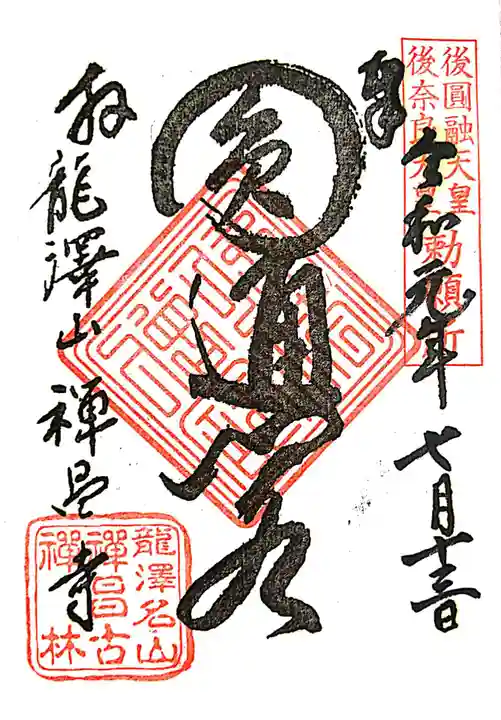 後圓融天皇
後奈良天皇勅願所
奉
令和元年 七月十三日
圓通閣
龍澤山 禅昌寺
龍澤名山
禪昌古
禪林